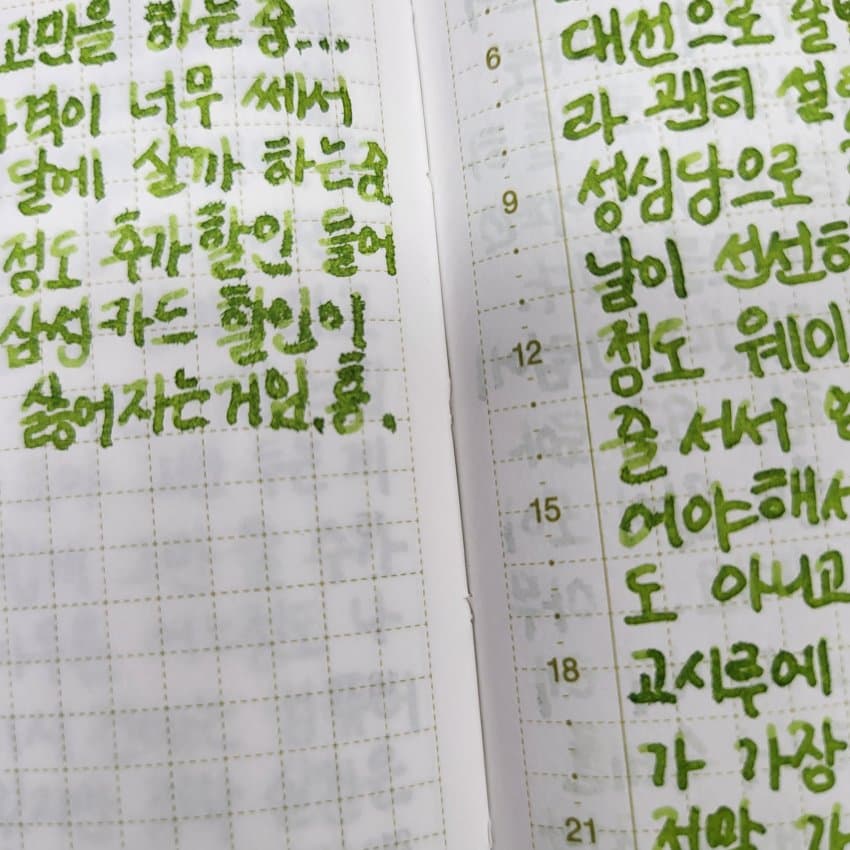 고민을 하는 중...
가격이 너무 쎄서
달에 살까 하는 중
정도 추가 할인 들어
삼성카드 할인이
싫어지는거임. 흥.
6
9
12
15
18
21
대전으로
라 괜히
성심당으로
날이 선선히
정도 웨이
줄 서서
어야해서
도 아니고
고시루에
가 가장
전망